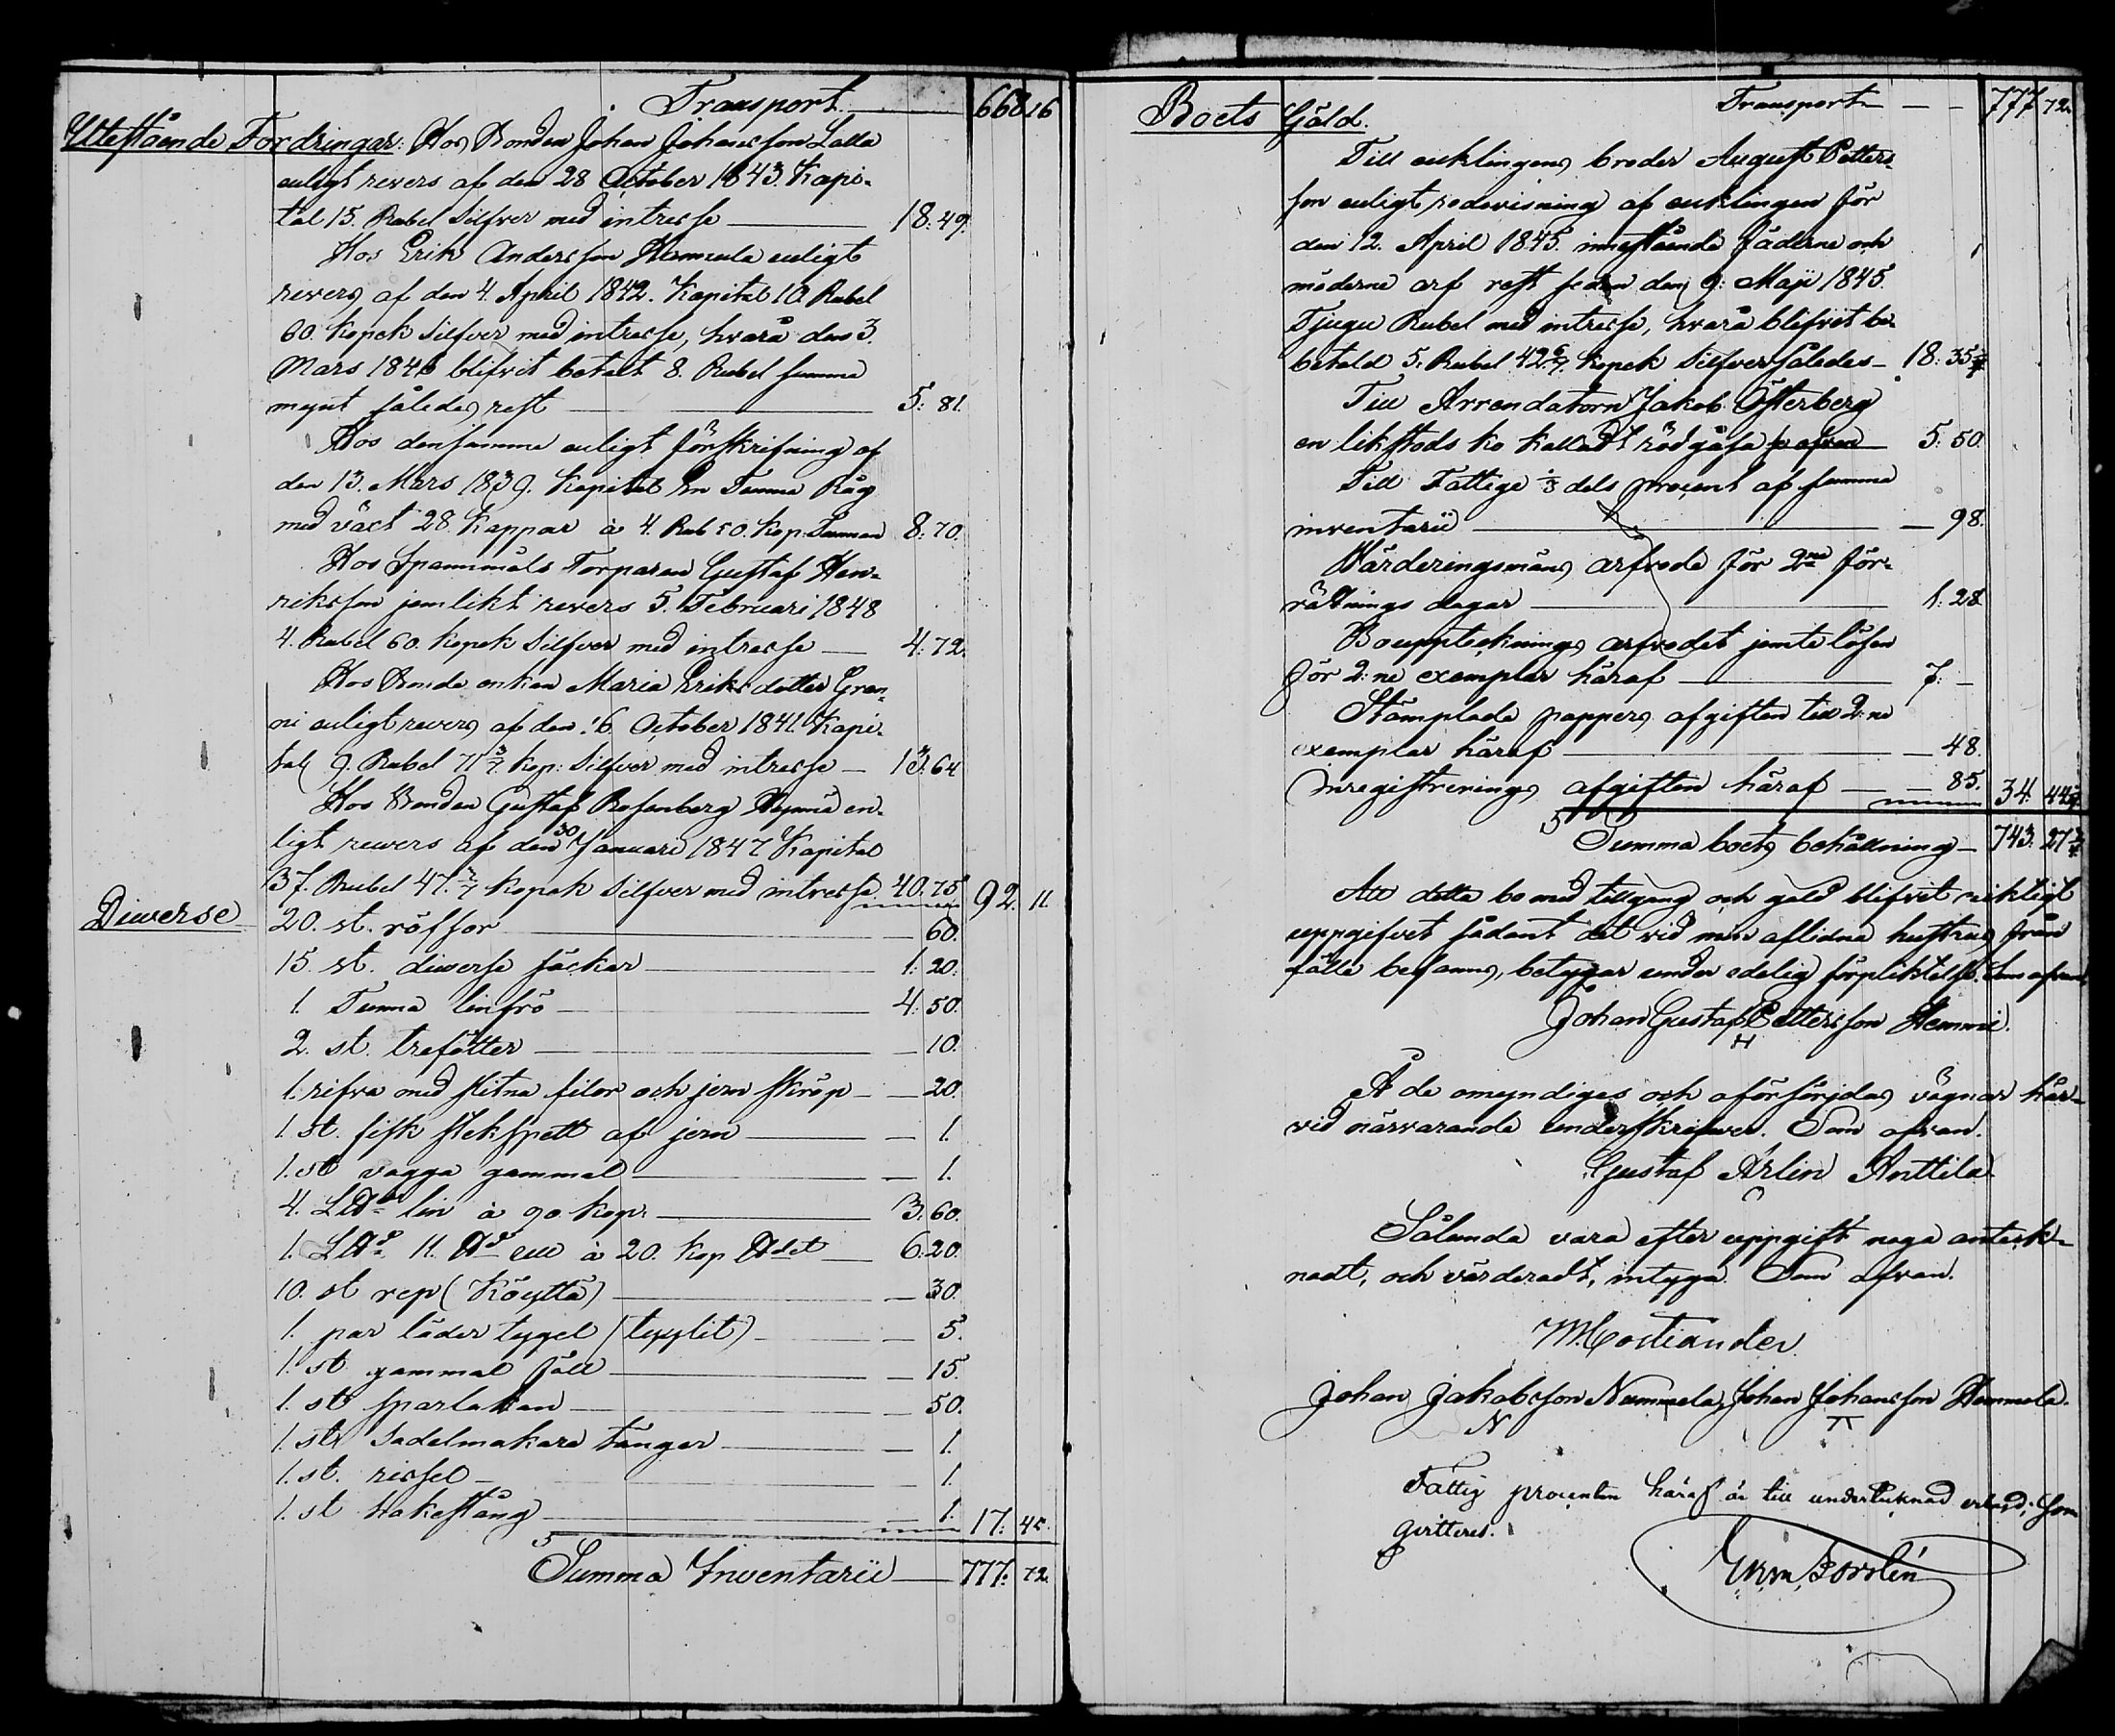 Transport 668 16
Utestående Fordringar: Hos Bonden Johan Johansson Lalla
enligt revers af den 28 October 1843. Kapi-
tal 15. Rubel Silfver med intresse 18: 49.
Hos Erik Andersson enligt
revers af den 4. April 1842. Kapital 10 Rubel
60. Kopek Silfver med intresse, hvarå den 3.
Mars 1846 blifvit betalt 8. Rubel samma
mynt således rest 5: 81.
Hos densamma enligt förskrifning af
den 13. Mars 1839. Kapital En Tunna Råg
med växt 28 Kappar à 4. Rub 50. Kop: Tunnan 8: 70.
Hos Spannmåls Torparen Gustaf Hen-
riksson jemlikt revers 5. Februari 1848
4. Rubel 60. Kopek Silfver med intresse 4: 72.
Hos Bonde enkan Maria Eriksdotter Gran-
ni enligt revers af den 16 October 1841. Kapi-
tal 9. Rubel 71 3/7 Kop: Silfver med intresse 13: 64
Hos Bonden Gustaf Rosenberg en-
ligt revers af den 30 Januari 1847 Kapital
37. Rubel 47 Kopek Silfver med intresse 40. 75 92. 11.
Diverse 20. st. röffor 60.
15. st. diverse säckar 1: 20.
1. Tunna linfrö 4: 50.
2. st. trefötter 10.
1. rifva med slitna filor och jern skröp 20.
1. st. fisk stekspett af jern 1.
1. st vagga gammal 1.
4. L℔ lin à 90 kop: 3: 60.
1. L℔ 11. ℔ ull à 20. kop ℔det 6: 20.
10. st rep (Köyttä) 30.
1. par läder tygel 5.
1. st gammal fäll 15.
1. st sparlakan 50.
1. st Sadelmakare tänger 1.
1. st. rissel 1.
1. st Hakestång 1. 17: 45.
Summa Inventarii 777: 72.
Boets Gäld. Transport 777 72.
Till enklingens broder August Petters-
son enligt redovisning af enklingen för
den 12. April 1845. innestående fäderne och
möderne arf rest sedan den 9: Maji 1845.
Tjugu Rubel med intresse, hvarå blifvit be-
betald 5. Rubel 42 6/7 Kopek Silfver således 18: 35
Till Arrendatorn Jakob Österberg
en likstods ko kallad rödgåsa 5: 50.
Till Fattige 1/8 dels procent af summa
inventarii 98.
Värderingsmäns arfvode för 2ne för-
rättnings dagar 1: 28.
Bouppteckningsarfvodet jemte lösen
för 2:ne exemplar häraf 7: –
Stämplade pappers afgiften till 2:ne
exemplar häraf 48.
Inregistrerings afgiften häraf 85. 34: 44
Summa boets behållning 743: 27
Att detta bo med tillgång och gäld blifvit riktigt
uppgifvet sådant det vid min aflidna hustrus från
fälle befanns, betygar under edelig förpliktelse. Som ofvan
Johan Gustaf Pettersson Hemmi.
H
Å de omyndiges och oförsörjdas vägnar här-
vid närvarande underskrifver. Som ofvan.
Gustaf Arlin Anttila
Sålunda vara efter uppgift noga anteck-
nadt, och värderadt, intyga. Som ofvan.
Johan Jakobsson Nummela, Johan Johansson Hemmola.
N
Fattig procenten häraf är till undertecknad erlagd; som
qvitteras.